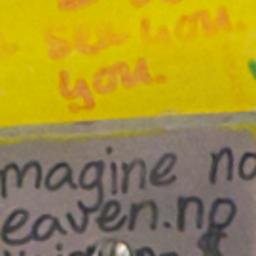 see you.
you.
magine no
eaven.no